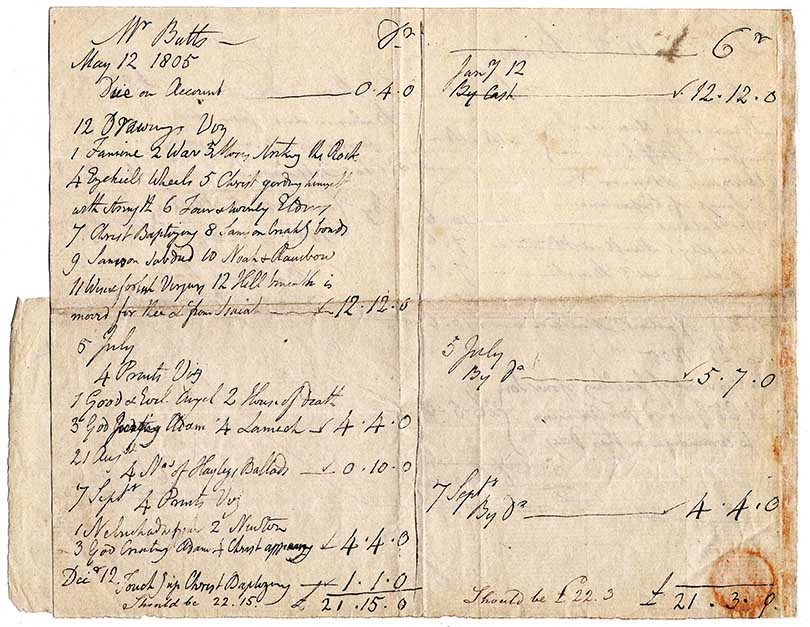 Mr Butts — Dr
May 12 1805
Due on Account 0.4.0
12 Drawings Viz
1 Famine 2 War 3 Moses Striking the Rock
4 Ezekiels Wheels 5 Christ girding himself
with strength 6 Four & twenty Elders
7 Christ Baptizing 8 Samson breaking bonds
9 Samson subdued 10 Noah & Rainbow
11 Wise & foolish Virgins 12 Hell beneath is
moved for thee &c from Isaiah 12.12.0
5 July
4 Prints Viz
1 Good & Evil Angel 2 House of Death
3 God Judging Adam 4 Lamech 4.4.0
21 Augst
4 Nos of Hayleys Ballads 0.10.0
7 Septr
4 Prints Viz
1 Nebuchadnezzar 2 Newton
3 God Creating Adam 4 Christ appearing 4.4.0
Decr 12. Touching up Christ Baptizing 1.1.0
Should be 22.15. £ 21.15.0
Cr
Jany 12
By Cash 12.12.0
5 July
By Do 5.7.0
7 Septr
By Do 4.4.0
Should be £22.3 £ 21.3.0